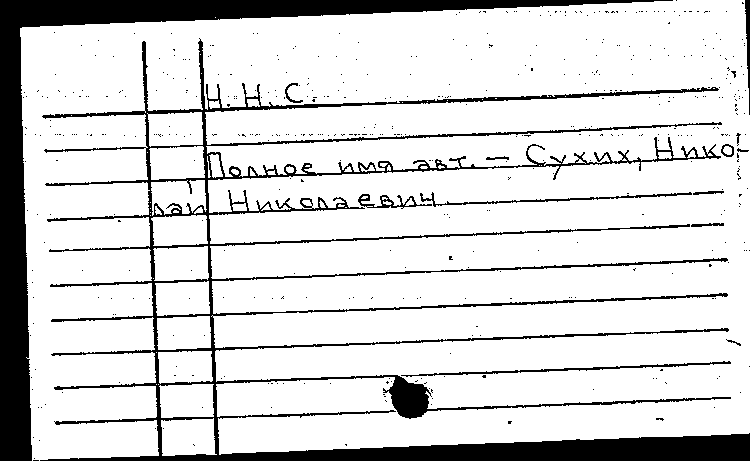 Н. Н. С.
Полное имя авт. — Сухих, Нико-
лай Николаевич